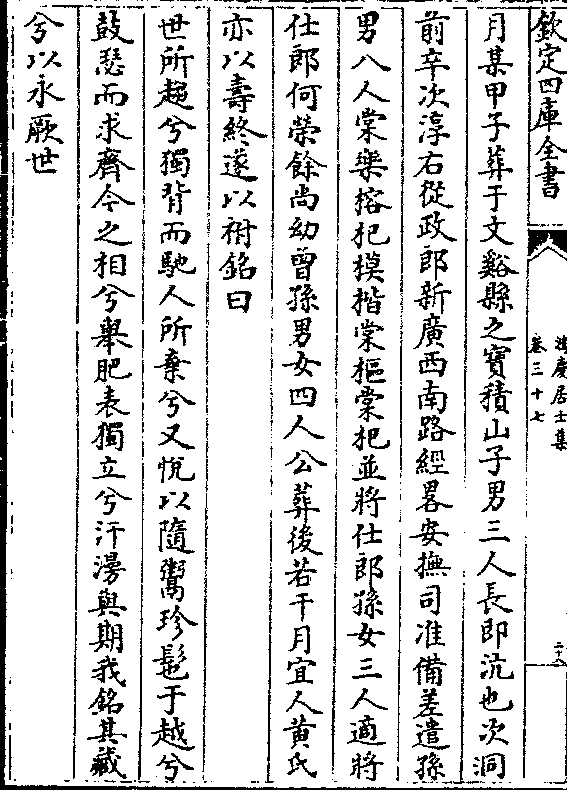 欽定四庫全書
鴻慶居士集
卷三十七
二十八
月某甲子葬于文谿縣之寶積山子男三人長即沆也次洞
前卒次淳右從政郎新廣西南路經畧安撫司准備差遣孫
男八人棠樂榕杞模楷棠樞棠杷並將仕郎孫女三人適將
仕郎何榮餘尚幼曾孫男女四人公葬後若干月宜人黄氏
亦以壽終遂以祔銘曰
世所趨兮獨背而馳人所棄兮又悅以隨鬻珍髢于越兮
鼓瑟而求齊令之相兮舉肥表獨立兮汗漫與期我銘其藏
兮以永厥世